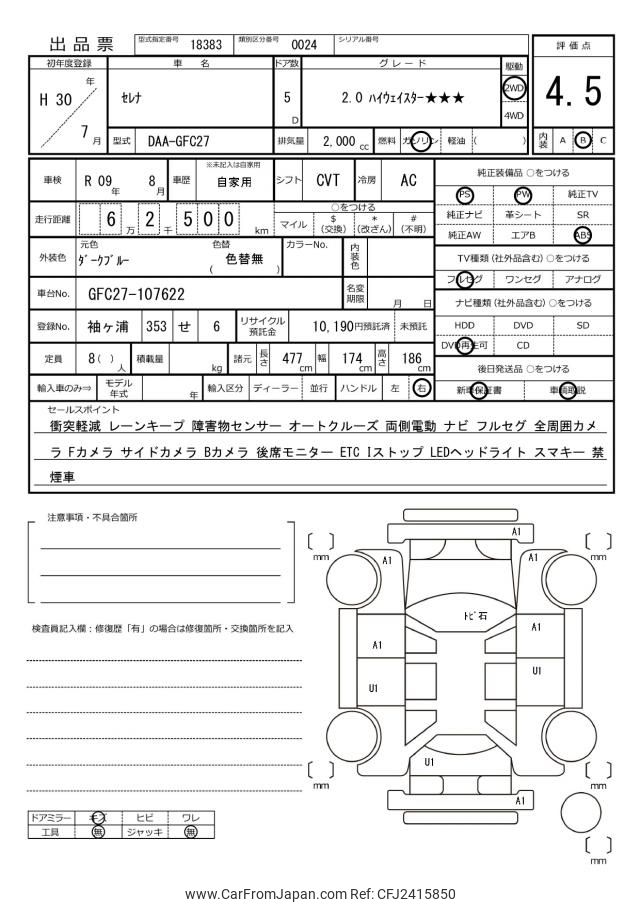 出品票 型式指定番号 18383 類別区分番号 0024 シリアル番号
評価点
4.5
内装 A B C
初年度登録 車名 ドア数 グレード 駆動
H 30 年 7 月 セレナ 5 D 2.0 ハイウェイスター★★★ 2WD 4WD
型式 DAA-GFC27 排気量 2,000 cc 燃料 ガソリン 軽油 ( )
車検 R 09 年 8 月 車歴 ※未記入は自家用 自家用 シフト CVT 冷房 AC
走行距離 6 2 万 千 5 0 0 km
○をつける
マイル $ (交換) * (改ざん) # (不明)
外装色 元色 ダークブルー 色替 ( 色替無 ) カラーNo. 内装色
車台No. GFC27-107622 名変期限 月 日
登録No. 袖ヶ浦 353 せ 6 リサイクル預託金 10,190円預託済 未預託
定員 8( ) 人 積載量 kg 諸元 長さ 477 cm 幅 174 cm 高さ 186 cm
輸入車のみ⇒ モデル年式 年 輸入区分 ディーラー 並行 ハンドル 左 右
純正装備品 ○をつける
PS PW 純正TV
純正ナビ 革シート SR
純正AW エアB ABS
TV種類 (社外品含む) ○をつける
フルセグ ワンセグ アナログ
ナビ種類 (社外品含む) ○をつける
HDD DVD SD
DVD再生可 CD
後日発送品 ○をつける
新車保証書 車輌取説
セールスポイント
衝突軽減 レーンキープ 障害物センサー オートクルーズ 両側電動 ナビ フルセグ 全周囲カメ
ラ Fカメラ サイドカメラ Bカメラ 後席モニター ETC Iストップ LEDヘッドライト スマキー 禁
煙車
注意事項・不具合箇所
検査員記入欄：修復歴「有」の場合は修復箇所・交換箇所を記入
ドアミラー キズ ヒビ ワレ
工具 無 ジャッキ 無
A1
mm
mm
A1
A1
トビ石
A1
A1
U1
U1
U1
mm
mm
A1
mm
www.CarFromJapan.com Ref: CFJ2415850